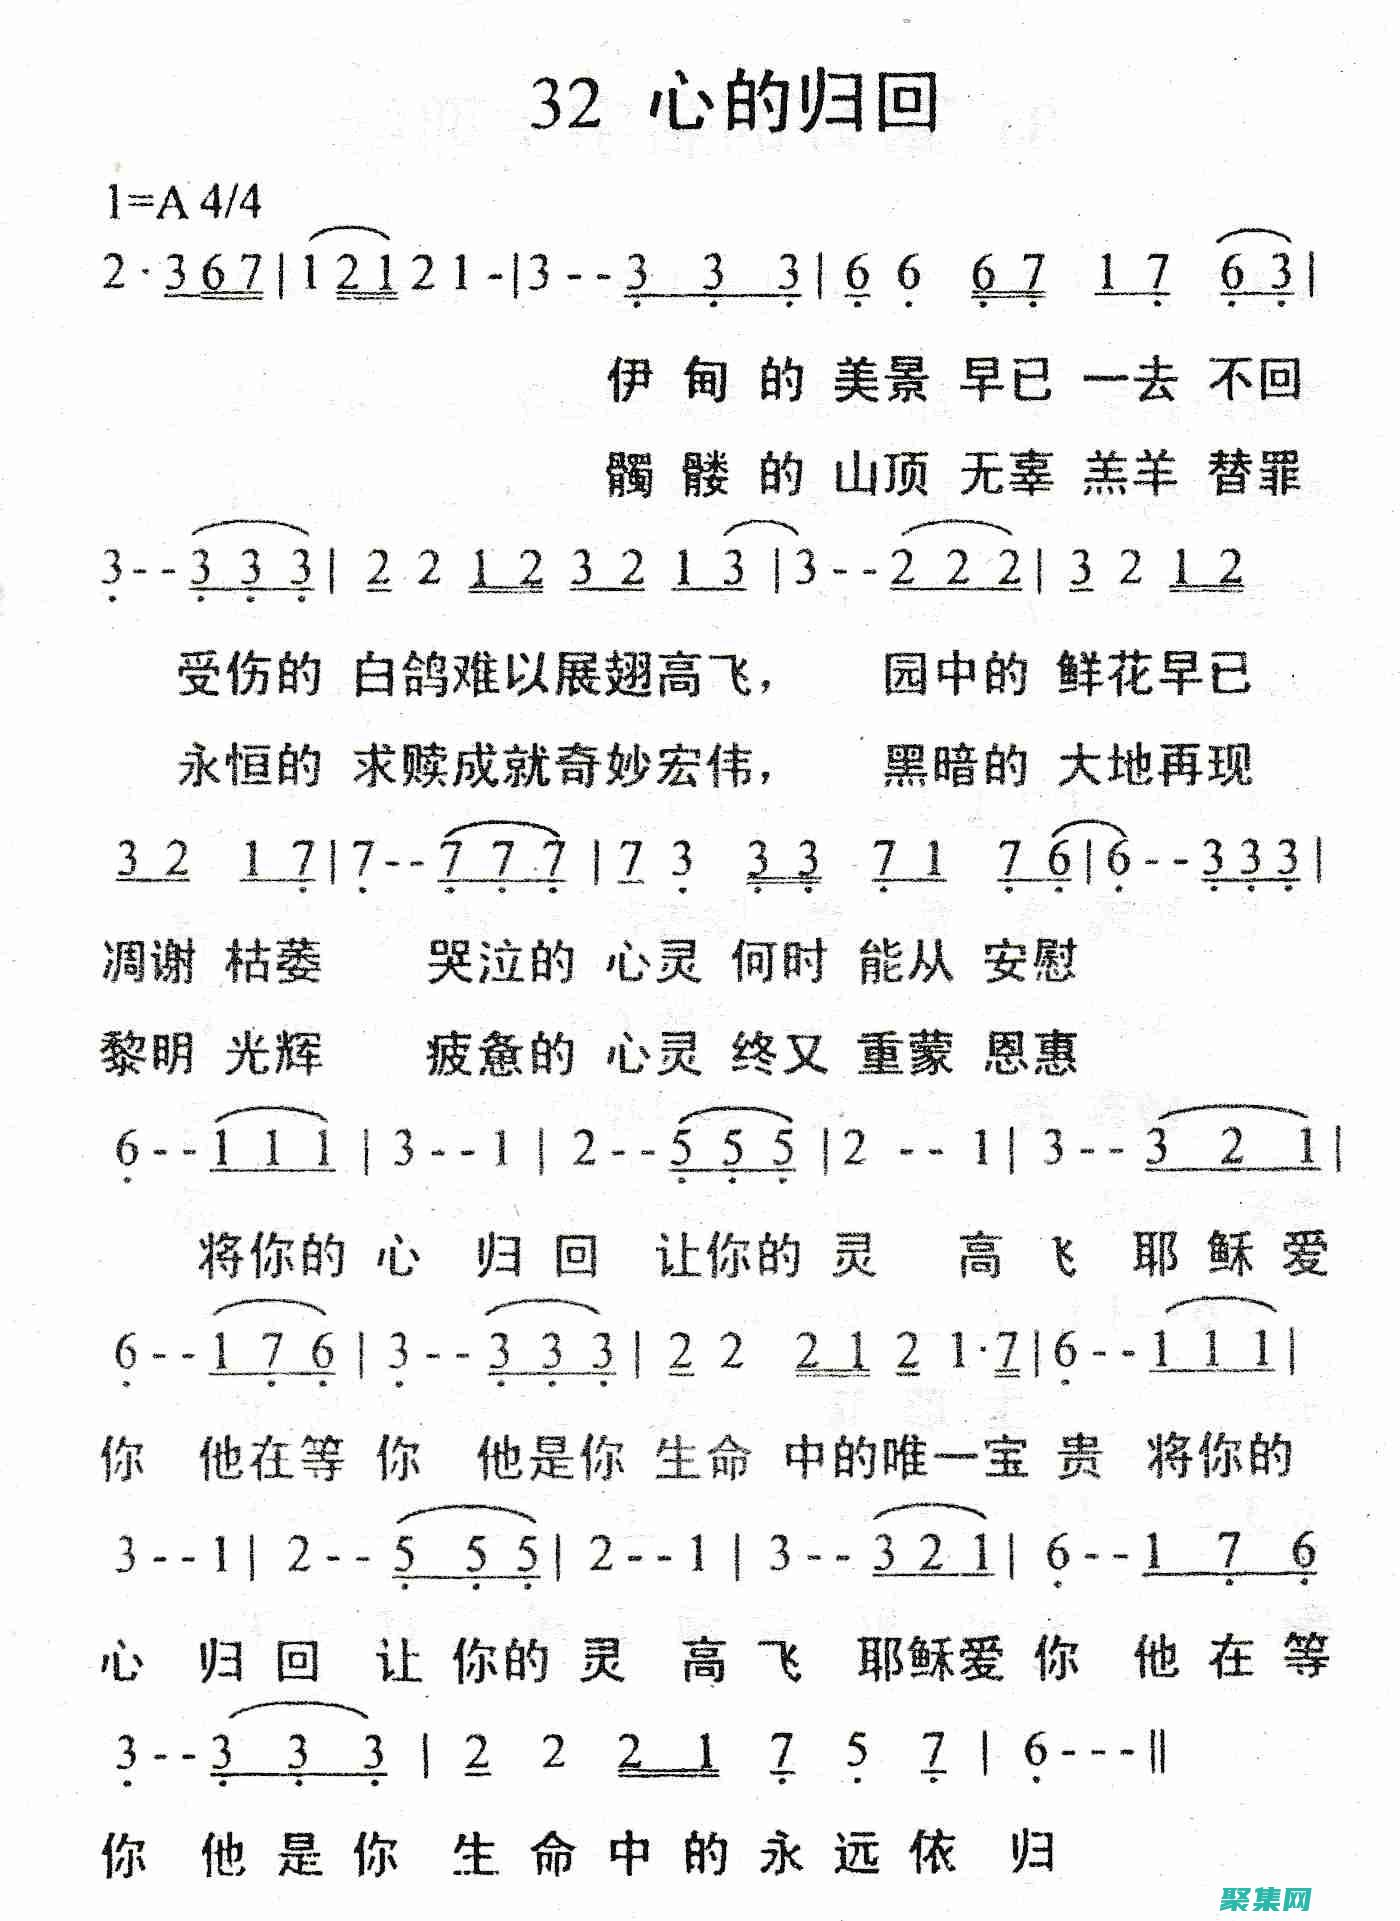 32 心的归回
1=A 4/4
2·3 6 7|1 2 1 2 1 -|3 - - 3 3 3|6 6 6 7 1 7 6 3|
伊甸的美景早已一去不回
髑髅的山顶无辜羔羊替罪
3 - - 3 3 3|2 2 1 2 3 2 1 3|3 - - 2 2 2|3 2 1 2
受伤的 白鸽难以展翅高飞， 园中的 鲜花早已
永恒的 求赎成就奇妙宏伟， 黑暗的 大地再现
3 2 1 7|7 - - 7 7 7|7 3 3 3 7 1 7 6|6 - - 3 3 3|
凋谢 枯萎 哭泣的 心灵 何时 能从 安慰
黎明 光辉 疲惫的 心灵 终又 重蒙 恩惠
6 - - 1 1 1|3 - - 1|2 - - 5 5 5|2 - - 1|3 - - 3 2 1|
将你的 心 归 回 让你的 灵 高 飞 耶 稣 爱
6 - - 1 7 6|3 - - 3 3 3|2 2 2 1 2 1·7|6 - - 1 1 1|
你 他在等 你 他是你 生命 中的唯一宝 贵 将你的
3 - - 1|2 - - 5 5 5|2 - - 1|3 - - 3 2 1|6 - - 1 7 6
心 归 回 让 你的 灵 高 飞 耶稣爱 你 他 在 等
3 - - 3 3 3|2 2 2 1 7 5 7|6 - - -‖
你 他 是 你 生 命 中 的 永 远 依 归
聚集网